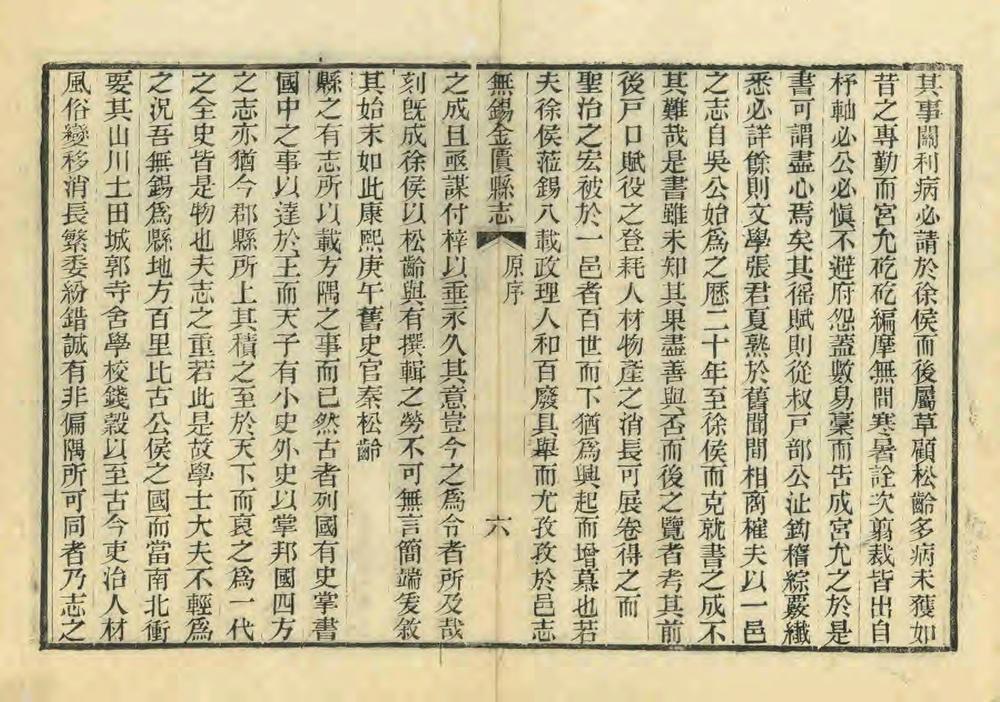 其事關利病必請於徐侯而後屬草顧松齡多病未獲如
昔之專勤而宮允矻矻編摩無間寒暑詮次翦裁皆出自
杼軸必公必愼不避府怨蓋數易稾而吿成宮允之於是
書可謂盡心焉矣其徭賦則從叔戸部公沚鈎稽綜覈纖
悉必詳餘則文學張君夏熟於舊聞間相商榷夫以一邑
之志自吳公始爲之歷二十年至徐侯而克就書之成不
其難哉是書雖未知其果盡善與否而後之覽者考其前
後戸口賦役之登耗人材物產之消長可展卷得之而
聖治之宏被於一邑者百世而下猶爲興起而增慕也若
夫徐侯蒞錫八載政理人和百廢具舉而尤孜孜於邑志
無錫金匱縣志 原序 六
之成且亟謀付梓以垂永久其意豈今之爲令者所及哉
刻旣成徐侯以松齡與有撰輯之勞不可無言簡端爰敘
其始末如此康熙庚午舊史官秦松齡
縣之有志所以載方隅之事而已然古者列國有史掌書
國中之事以達於王而天子有小史外史以掌邦國四方
之志亦猶今郡縣所上其積之至於天下而裒之爲一代
之全史皆是物也夫志之重若此是故學士大夫不輕爲
之況吾無錫爲縣地方百里比古公侯之國而當南北衝
要其山川土田城郭寺舍學校錢穀以至古今吏治人材
風俗變移消長繁委紛錯誠有非偏隅所可同者乃志之